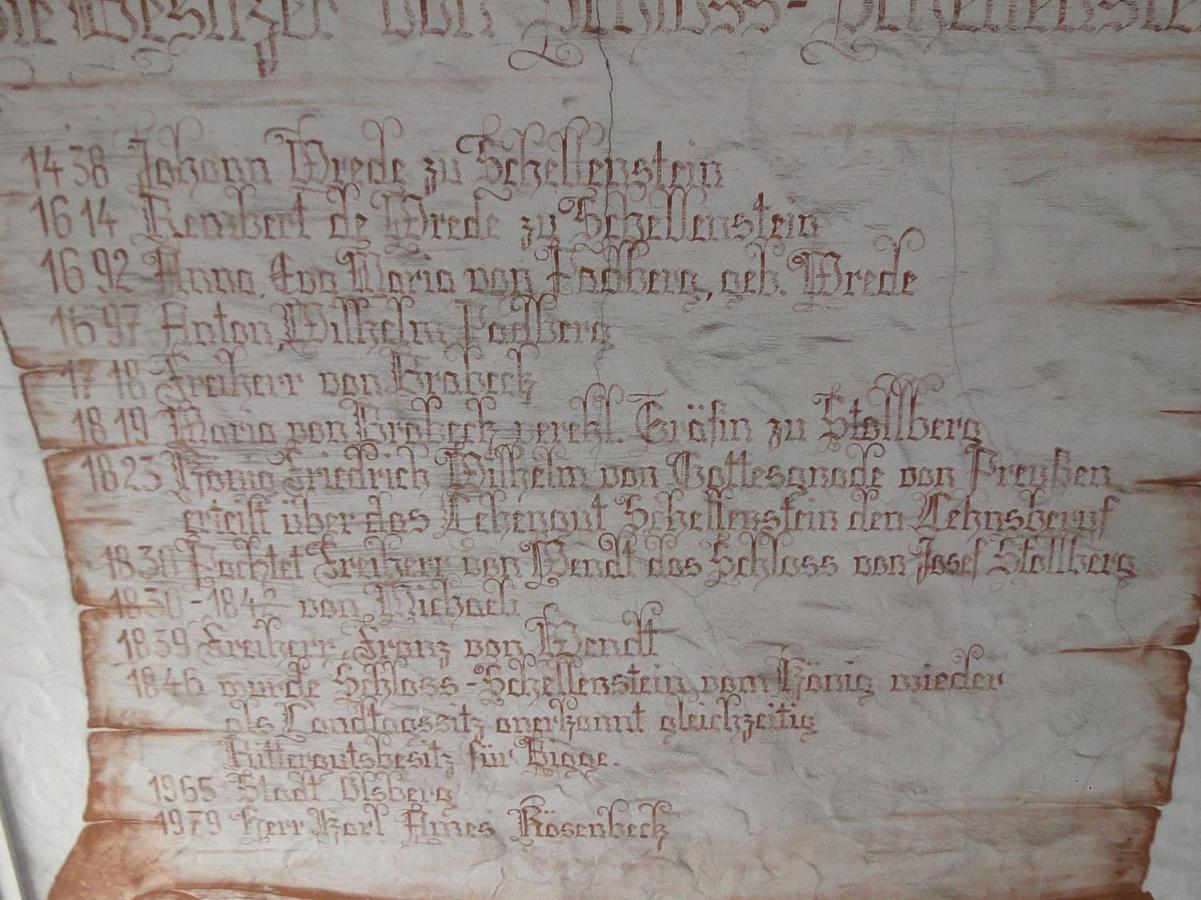 Die Besitzer von Schloss-Schellenstein
1438 Johann Wrede zu Schellenstein
1614 Rembert de Wrede zu Schellenstein
1692 Anna, Eva Maria von Padberg, geb. Wrede
1697 Anton, Wilhelm Padberg
1718 Freiherr von Brabeck
1819 Maria von Brabeck verehl. Gräfin zu Stollberg
1823 König Friedrich Wilhelm von Gottesgnade von Preußen
erteilt über das Lehengut Schellenstein den Lehnsberuf
1830 Pachtet Freiherr von Wendt das Schloss von Josef Stollberg
1830-1842 von Michaeli
1839 Freiherr, Franz von Wendt
1846 wurde Schloss-Schellenstein vom König wieder
als Landtagssitz anerkannt gleichzeitig
Rittergutsbesitz für Bigge.
1965 Stadt Olsberg
1979 Herr Karl Rösenbeck